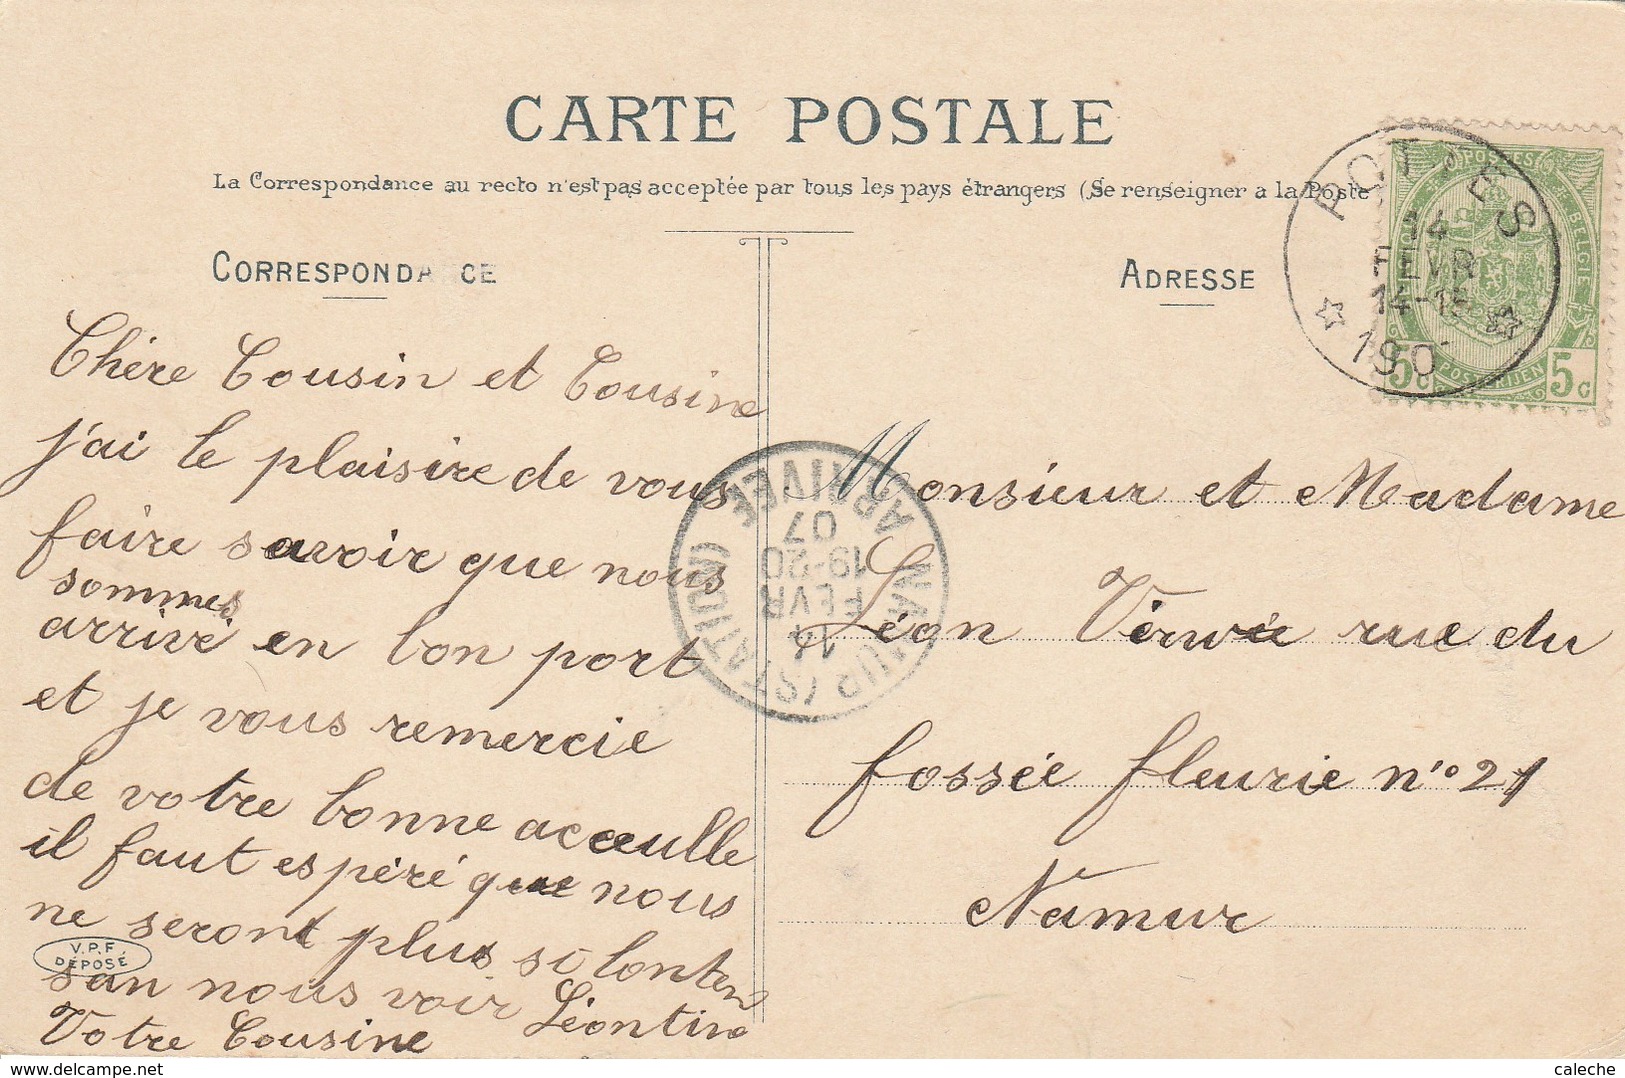 CARTE POSTALE
La Correspondance au recto n'est pas acceptée par tous les pays étrangers (Se renseigner a la Poste
CORRESPONDANCE
Chère Cousin et Cousine
j'ai le plaisire de vous
faire savoir que nous
sommes
arrivé en bon port
et je vous remercie
de votre bonne acceulle
il faut espéré que nous
ne seront plus si lonten
san nous voir Léontine
Votre Cousine
V.P.F.
DÉPOSÉ
ADRESSE
Monsieur et Madame
Léon Verwée rue du
fossée fleurie n'o 21
Namur
POTTES
14
FEVR
14-15
190
POSTES
BELGIE
POSTERIJEN
5c
5c
NAMUR (STATION)
ARRIVEE
14
FEVR
19-20
07
delcampe.net
caleche